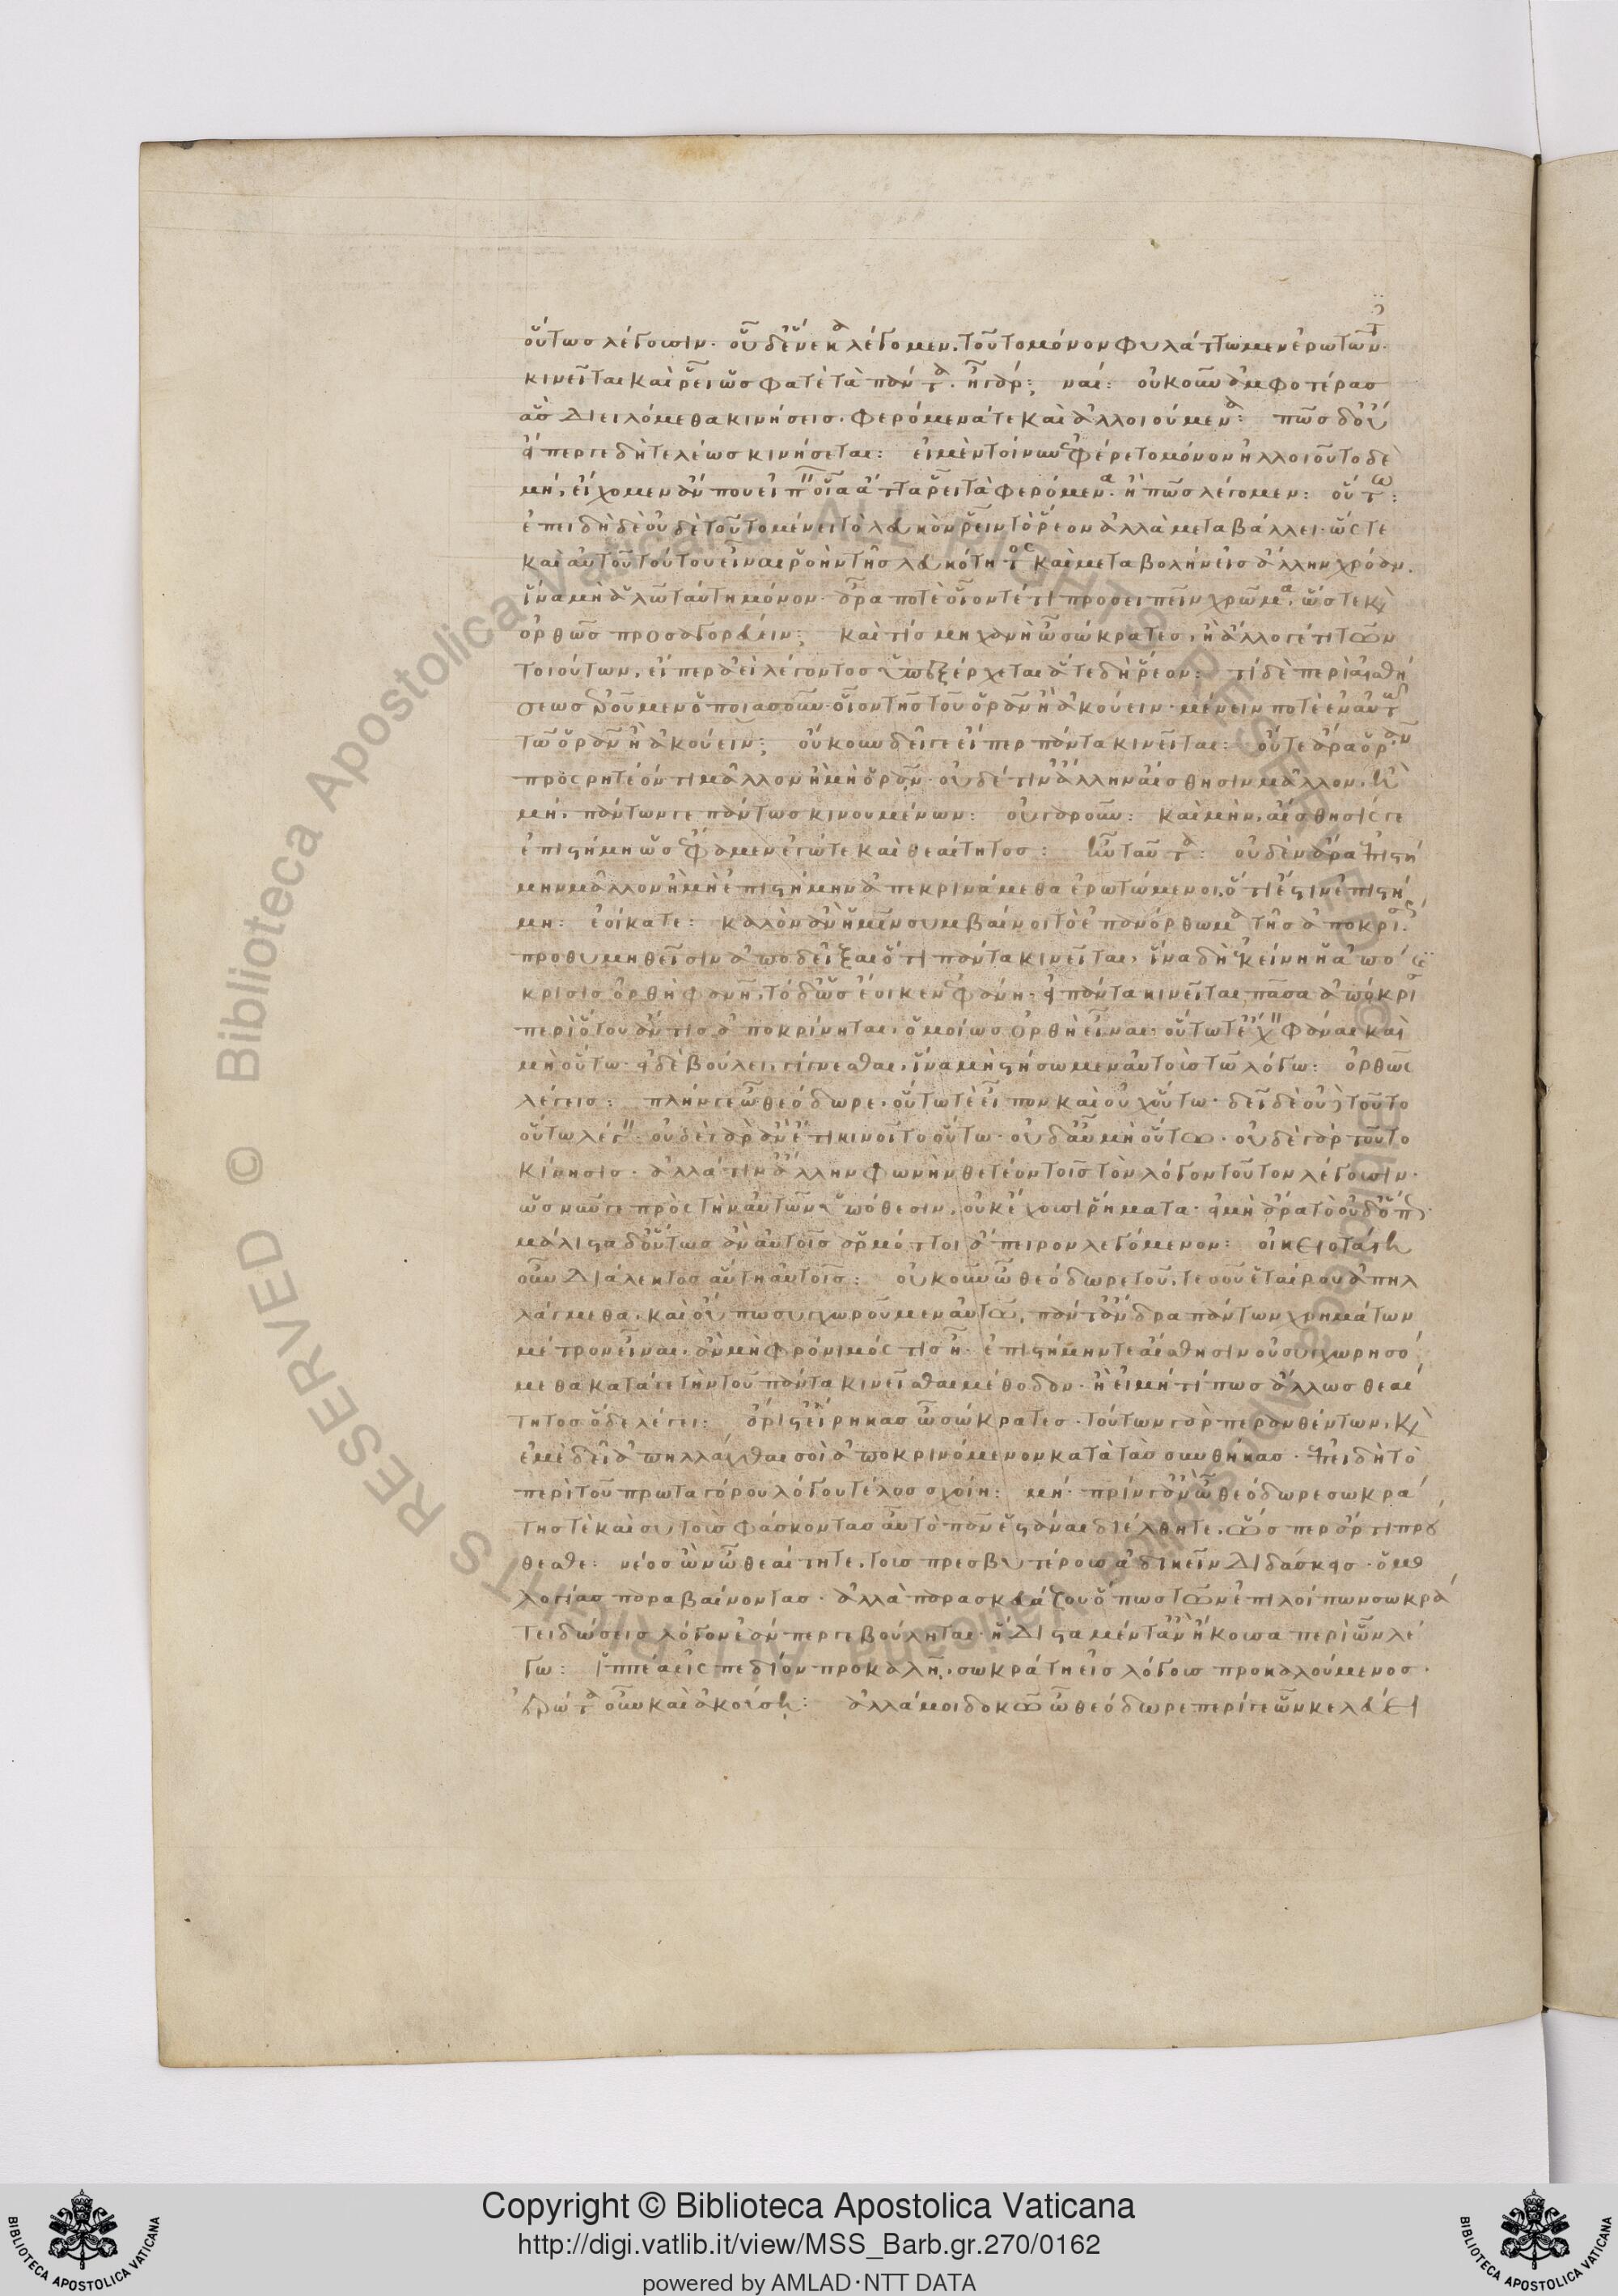 οὕτως λέγουσιν. οὗ δ' ἕνεκα λέγομεν, τοῦτο μόνον φυλάττωμεν ἐρωτῶντ
κινεῖται καὶ ῥεῖ ὥς φατὲ τὰ πάντα. ἦ γάρ; ναί: οὐκοῦν ἀμφοτέρας
ἃς διειλόμεθα κινήσεις. φερόμενά τε καὶ ἀλλοιούμενα: πῶς δ' οὔ
εἴπερ γε δὴ τελέως κινήσεται: εἰ μὲν τοίνυν ἐφέρετο μόνον ἠλλοιοῦτο δὲ
μή, εἴχομεν ἄν που εἰπεῖν οἷα ἄττα ῥεῖ τὰ φερόμενα. ἢ πῶς λέγομεν: οὕτω:
ἐπειδὴ δὲ οὐδὲ τοῦτο μένει τὸ λευκὸν ῥεῖν τὸ ῥέον ἀλλὰ μεταβάλλει. ὥστε
καὶ αὐτοῦ τούτου εἶναι ῥοὴν τῆς λευκότητος καὶ μεταβολὴν εἰς ἄλλην χρόαν.
ἵνα μὴ ἁλῶ ταύτη μόνον. ἆρα ποτὲ οἷόν τέ τι προσειπεῖν χρῶμα, ὥστε κ
ὀρθῶς προσαγορεύειν; καὶ τίς μηχανὴ ὦ σώκρατες, ἢ ἄλλό γέ τι τῶν
τοιούτων, εἴπερ ἀεὶ λέγοντος ὑπεξέρχεται ἅτε δὴ ῥέον: τί δὲ περὶ αἰσθή
σεως ἐροῦμεν ὁποιασοῦν. οἷον τῆς τοῦ ὁρᾶν ἢ ἀκούειν. μένειν ποτὲ ἐν αὐτ
τῶ ὁρᾶν ἢ ἀκούειν; οὔκουν δεῖ γε εἴπερ πάντα κινεῖται: οὔτε ἄρα ὁρᾶν
πρὸς ῥητέον τι μᾶλλον ἢ μὴ ὁρᾶν. οὐδέ τιν' ἄλλην αἴσθησιν μᾶλλον, ἢ
μή, πάντων γε πάντως κινουμένων: οὐ γὰρ οὖν: καὶ μὴν, αἴσθησίς γε
ἐπιστήμη ὡς ἔφαμεν ἐγώ τε καὶ θεαίτητος: ἦν ταῦτα: οὐδὲν ἄρα ἐπιστή
μην μᾶλλον ἢ μὴ ἐπιστήμην ἀπεκρινάμεθα ἐρωτώμενοι ὅ τί ἐστιν ἐπιστή
μη: ἐοίκατε: καλὸν ἂν ἡμῖν συμβαίνοι τὸ ἐπανόρθωμα τῆς ἀποκρίσ
προθυμηθεῖσιν ἀποδεῖξαι ὅτι πάντα κινεῖται, ἵνα δὴ ἐκείνη ἡ ἀπό
κρισις ὀρθὴ φανῆ, τὸ δ' ὡς ἔοικεν ἐφάνη. εἰ πάντα κινεῖται πᾶσα ἀπόκρι
περὶ ὅτου ἄν τις ἀποκρίνηται, ὁμοίως ὀρθὴ εἶναι. οὕτω τ' ἔχειν φάναι καὶ
μὴ οὕτω. εἰ δὲ βούλει, γίγνεσθαι, ἵνα μὴ στήσωμεν αὐτοὺς τῶ λόγω: ὀρθῶς
λέγεις: πλήν γε ὦ θεόδωρε, οὕτω τὲ εἶπον καὶ οὐχ οὕτω. δεῖ δὲ οὐ τοῦτο
οὕτω λέγειν. οὐδὲ γὰρ ἂν ἔτι κινοῖτο οὕτω. οὐδ' αὖ μὴ οὕτω. οὐδὲ γὰρ τοῦτο
κίνησις. ἀλλά τιν' ἄλλην φωνὴν θετέον τοῖς τὸν λόγον τοῦτον λέγουσιν.
ὡς νῦν γε πρὸς τὴν αὐτῶν ὑπόθεσιν, οὐκ ἔχουσι ῥήματα. εἰ μὴ ἄρα τὸ οὐδ' ὅπως
μάλιστα δ' οὕτως ἂν αὐτοῖς ἁρμόττοι ἄπειρον λεγόμενον: οἰκειοτάτη
οὖν διάλεκτος αὕτη αὐτοῖς: οὐκοῦν ὦ θεόδωρε τοῦ τε σοῦ ἑταίρου ἀπηλ
λάγμεθα, καὶ οὔπω συγχωροῦμεν αὐτῶ, πάντ' ἄνδρα πάντων χρημάτων
μέτρον εἶναι, ἂν μὴ φρόνιμός τις ἦ. ἐπιστήμην τε αἴσθησιν οὐ συγχωρησό
μεθα κατά γε τὴν τοῦ πάντα κινεῖσθαι μέθοδον. ἢ εἰ μή τί πως ἄλλως θεαί
τητος ὅδε λέγει: ἄριστ' εἴρηκας ὦ σώκρατες. τούτων γὰρ περανθέντων, κ
ἐμὲ δεῖ ἀπηλλάχθαι σοὶ ἀποκρινόμενον κατὰ τὰς συνθήκας. ἐπειδὴ τὸ
περὶ τοῦ πρωταγόρου λόγου τέλος σχοίη: μή. πρίν γ' ἂν ὦ θεόδωρε σωκρά
της τὲ καὶ σὺ τοὺς φάσκοντας αὖ τὸ πᾶν ἑστάναι διέλθητε, ὥσπερ ἄρτι πρού
θεσθε: νέος ὢν ὦ θεαίτητε, τοὺς πρεσβυτέρους ἀδικεῖν διδάσκεις. ὁμο
λογίας παραβαίνοντας. ἀλλὰ παρασκευάζου ὅπως τῶν ἐπιλοίπων σωκρά
τει δώσεις λόγον. ἐάν πέρ γε βούληται. ἥδιστα μέντ' ἂν ἤκουσα περὶ ὧν λέ
γω: ἱππέας εἰς πεδίον προκαλῆ, σωκράτη εἰς λόγους προκαλούμενος.
ἐρώτα οὖν καὶ ἀκούση: ἀλλά μοι δοκῶ ὦ θεόδωρε περί γε ὧν κελεύει
Copyright © Biblioteca Apostolica Vaticana
http://digi.vatlib.it/view/MSS_Barb.gr.270/0162
powered by AMLAD·NTT DATA